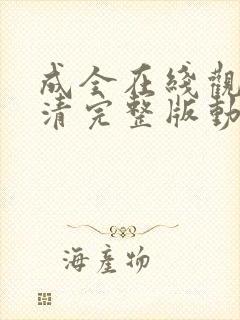 成全在綫觀
清完整版動
海產物